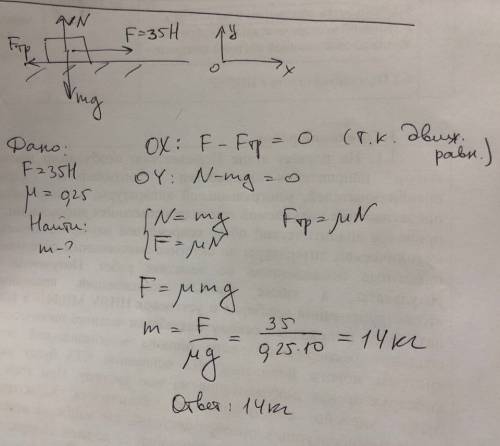 N
Fтр
F=35Н
mg
y
O
x
Дано:
F=35Н
μ = 0,25
Найти:
m-?
OX: F - Fтр = 0 (т.к. движ. равн.)
OY: N-mg=0
N=mg
F=μN
Fтр=μN
F=μmg
m = F/μg = 35/0,25·10 = 14кг
Ответ: 14кг